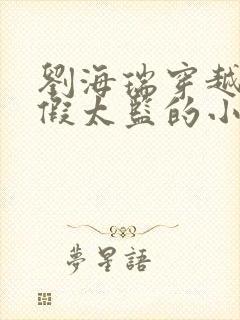 劉海瑞穿越
假太監的小
夢星語